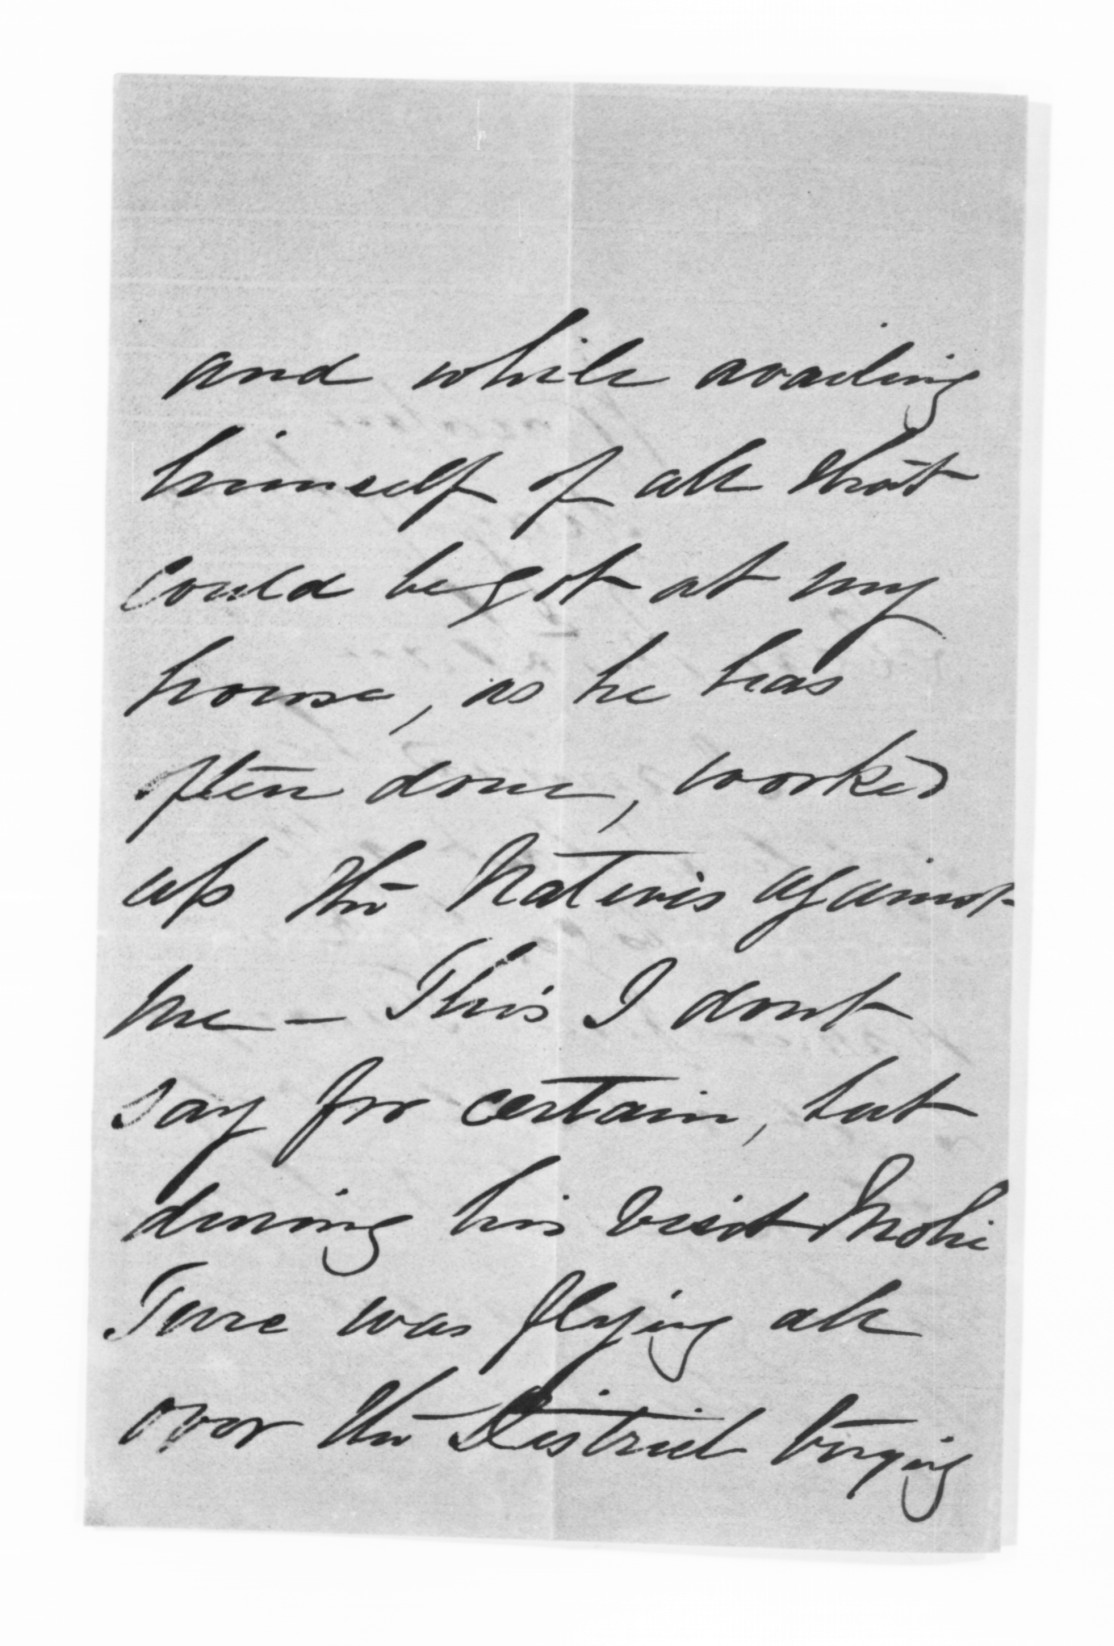 and while availing
himself of all that
could be got at my
house, as he has
often done, worked
up the Natives against
me - This I dont
say for certain, but
during his visit Mohi
Ture was flying all
over the District